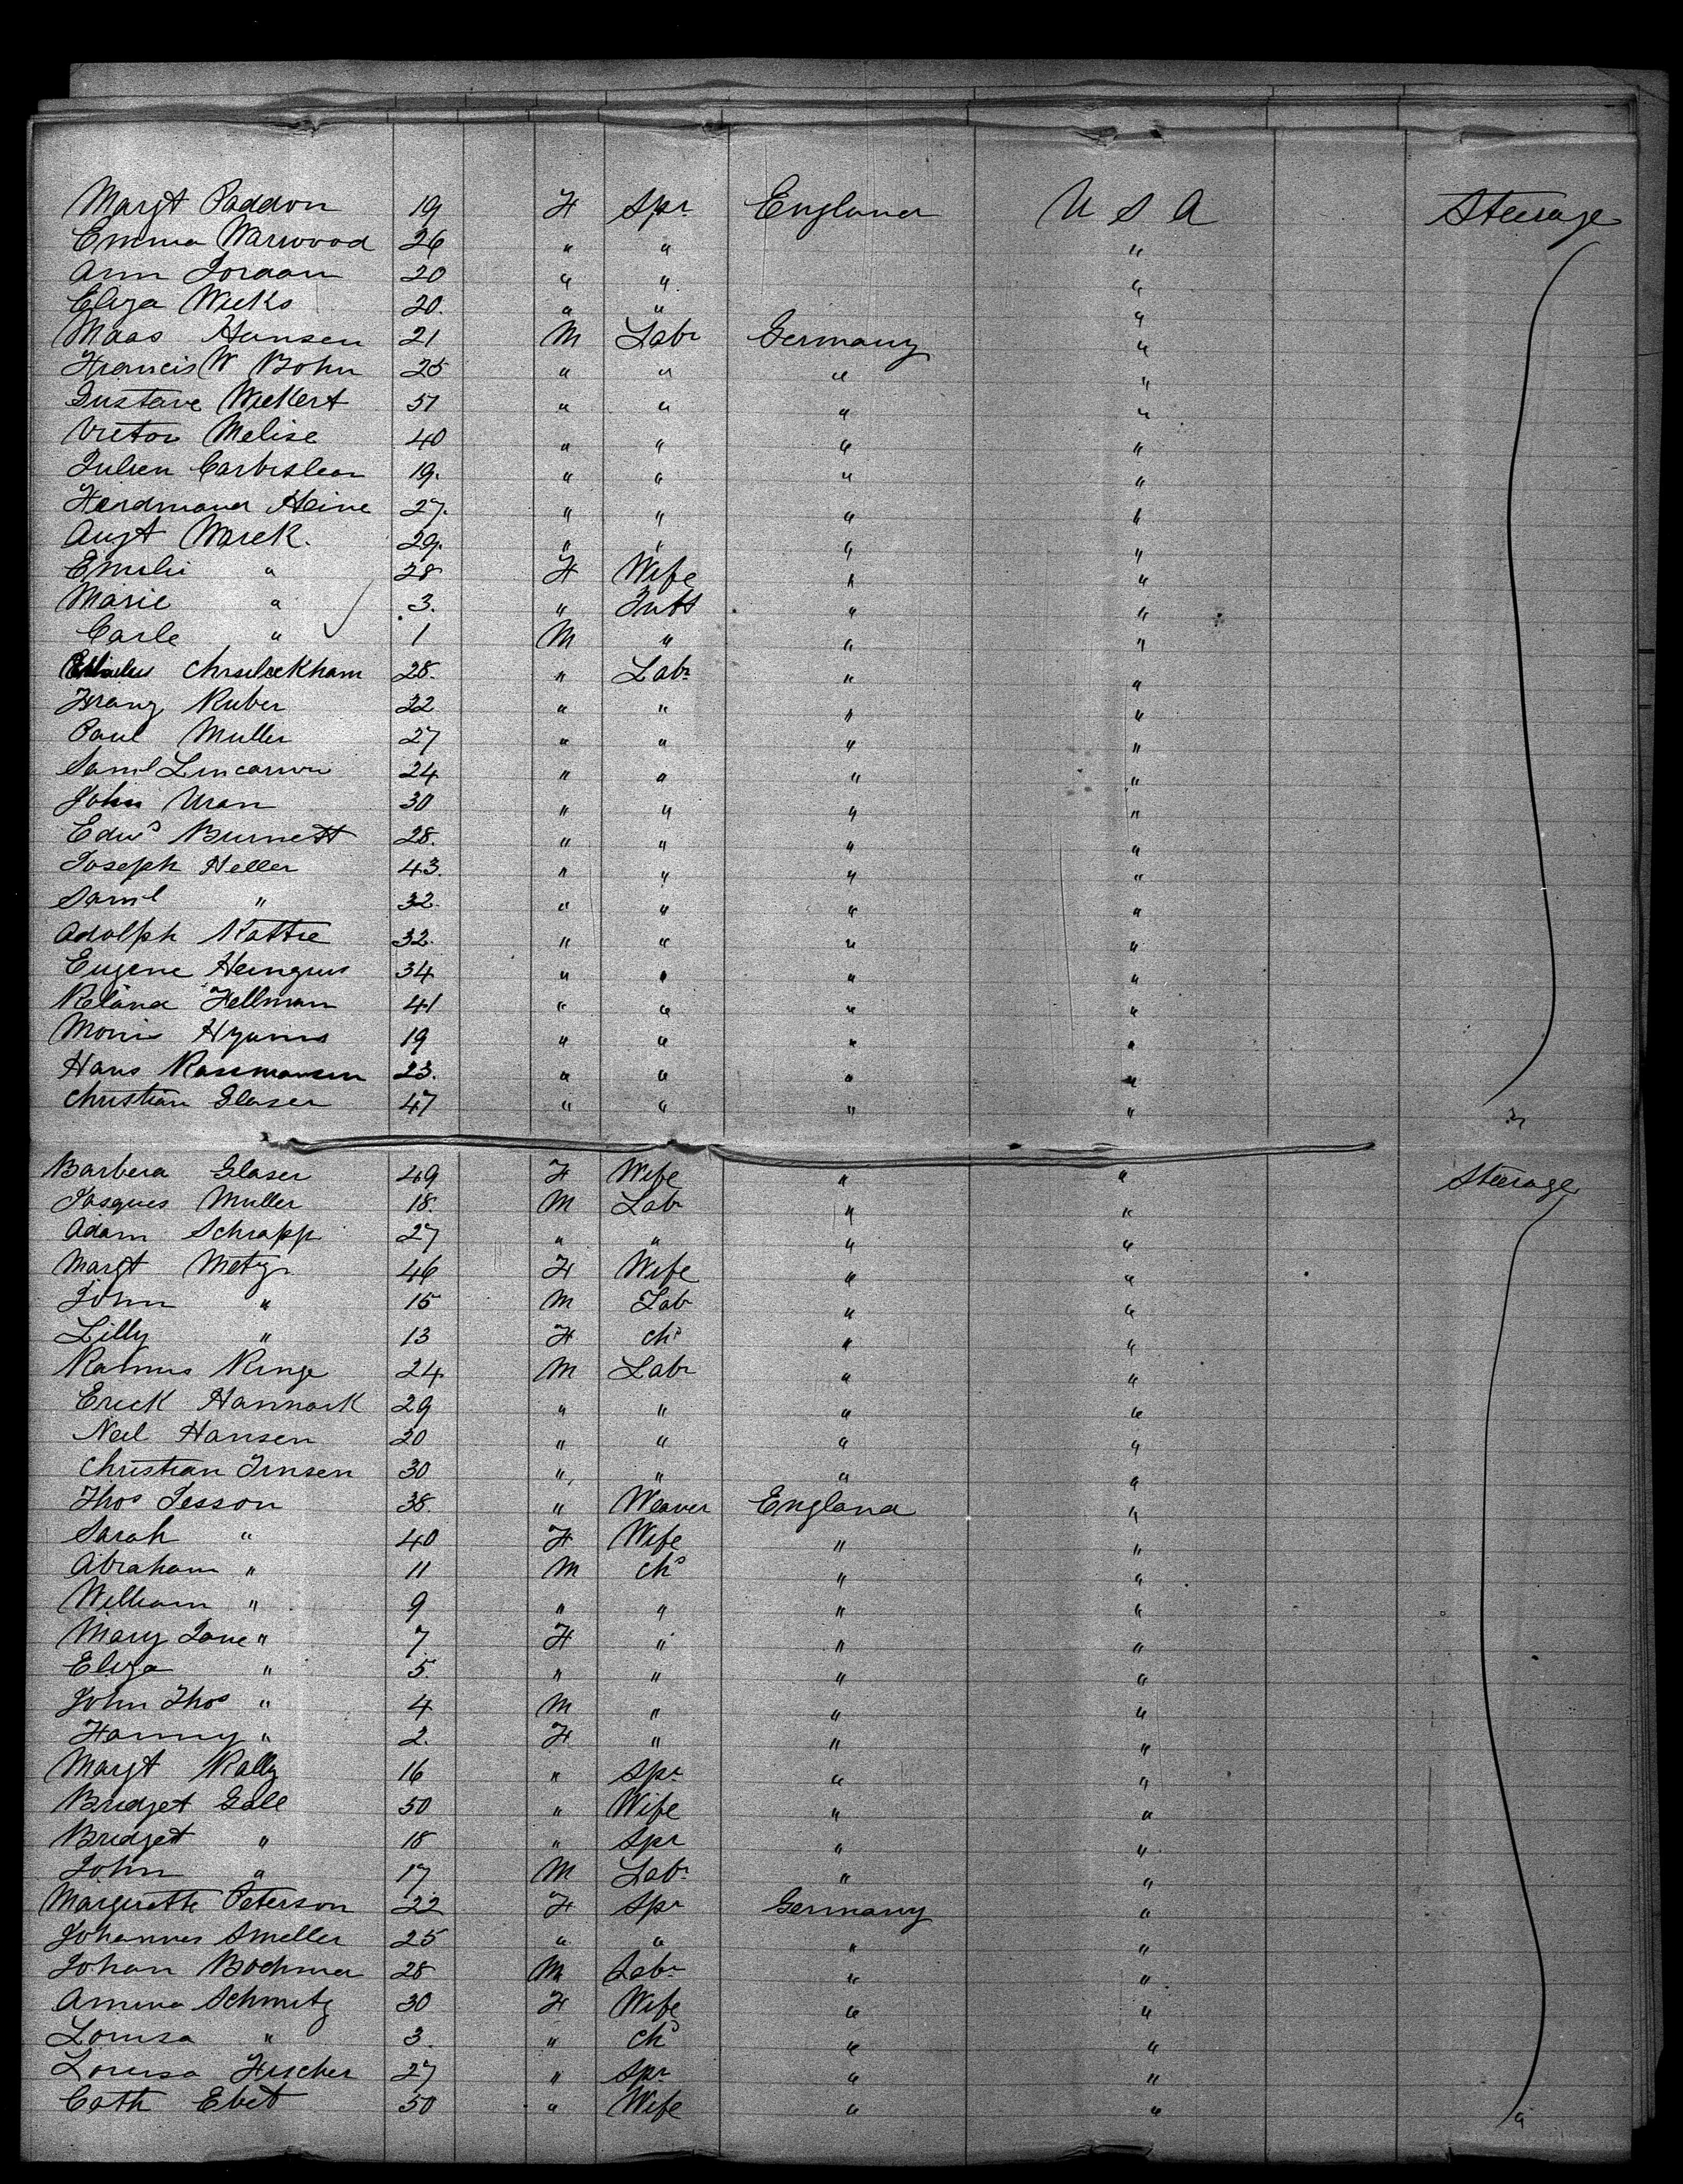 Margt Paddon 19 F Spr England U S A Steerage
Emma Warwood 26 " " "
Ann Jordan 20 " " "
Eliza Weeks 20. " " "
Maas Hansen 21 M Labr Germany "
Francis W Bohn 25 " " " "
Gustave Weekert 51 " " " "
Victor Melise 40 " " " "
Julien 19. " " " "
Ferdmand Heine 27. " " " "
Augt Warek. 29. " " " "
Emilie " 28 F Wife " "
Marie " 3. " Inft " "
Carle " 1 M " " "
28. " Labr " "
Franz Ruber 22 " " " "
Paul Muller 27 " " " "
Saml 24 " " " "
John Uran 30 " " " "
Edwd Burnett 28. " " " "
Joseph Heller 43. " " " "
Saml " 32. " " " "
Adolph Kattie 32. " " " "
Eugene 34 " " " "
Fellman 41 " " " "
Morris Hyams 19 " " " "
Hans Rassmausen 23. " " " "
Christian Glaser 47 " " " " "
Barbera Glaser 49 F Wife " " Steerage
Jasques Muller 18. M Labr " "
Adam Schrapp 27 " " " "
Margt Metzr 46 F Wife " "
John " 15 M Labr " "
Lilly " 13 F chd " "
Ringe 24 M Labr " "
Erick Hannark 29 " " " "
Neil Hansen 20 " " " "
Christian Jensen 30 " " " "
Thos Jesson 38. " Weaver England "
Sarah " 40 F Wife " "
Abraham " 11 M chd " "
William " 9 " " " "
Mary Jane " 7 F " " "
Eliza " 5. " " " "
John Thos " 4 M " " "
Fanny " 2. F " " "
Margt Rally 16 " Spr " "
Bridget Gall 50 " Wife " "
Bridget " 18 " Spr " "
John " 17 M Labr " "
Margurette Peterson 22 F Spr Germany "
Johannes Smeller 25 " " " "
Johan Bochmer 28 M Labr " "
Schmitz 30 F Wife " "
Louisa " 3. " chd " "
Louisa Fischer 27 " Spr " "
Cath Ebet 50 " Wife " " "